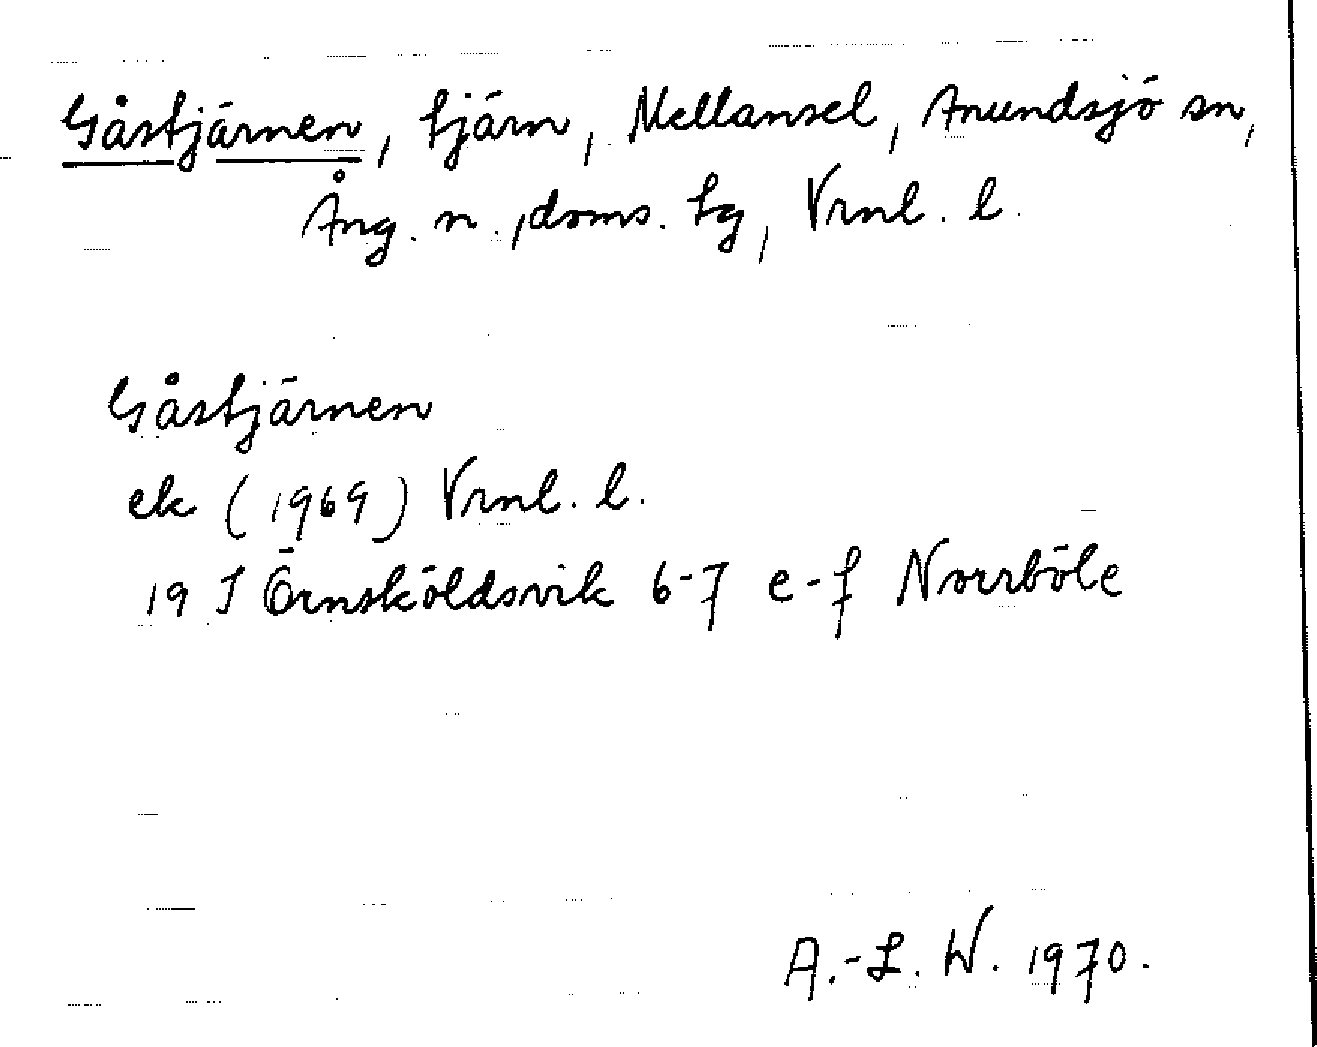 Gåstjärnen, tjärn, Mellansel, Anundsjö sn,
Ång. n., doms. tg, Vrnl. l.
Gåstjärnen
ek (1969) Vrnl. l.
19 J Örnsköldsvik 6-7 e-f Norrböle
A.-L. W. 1970.